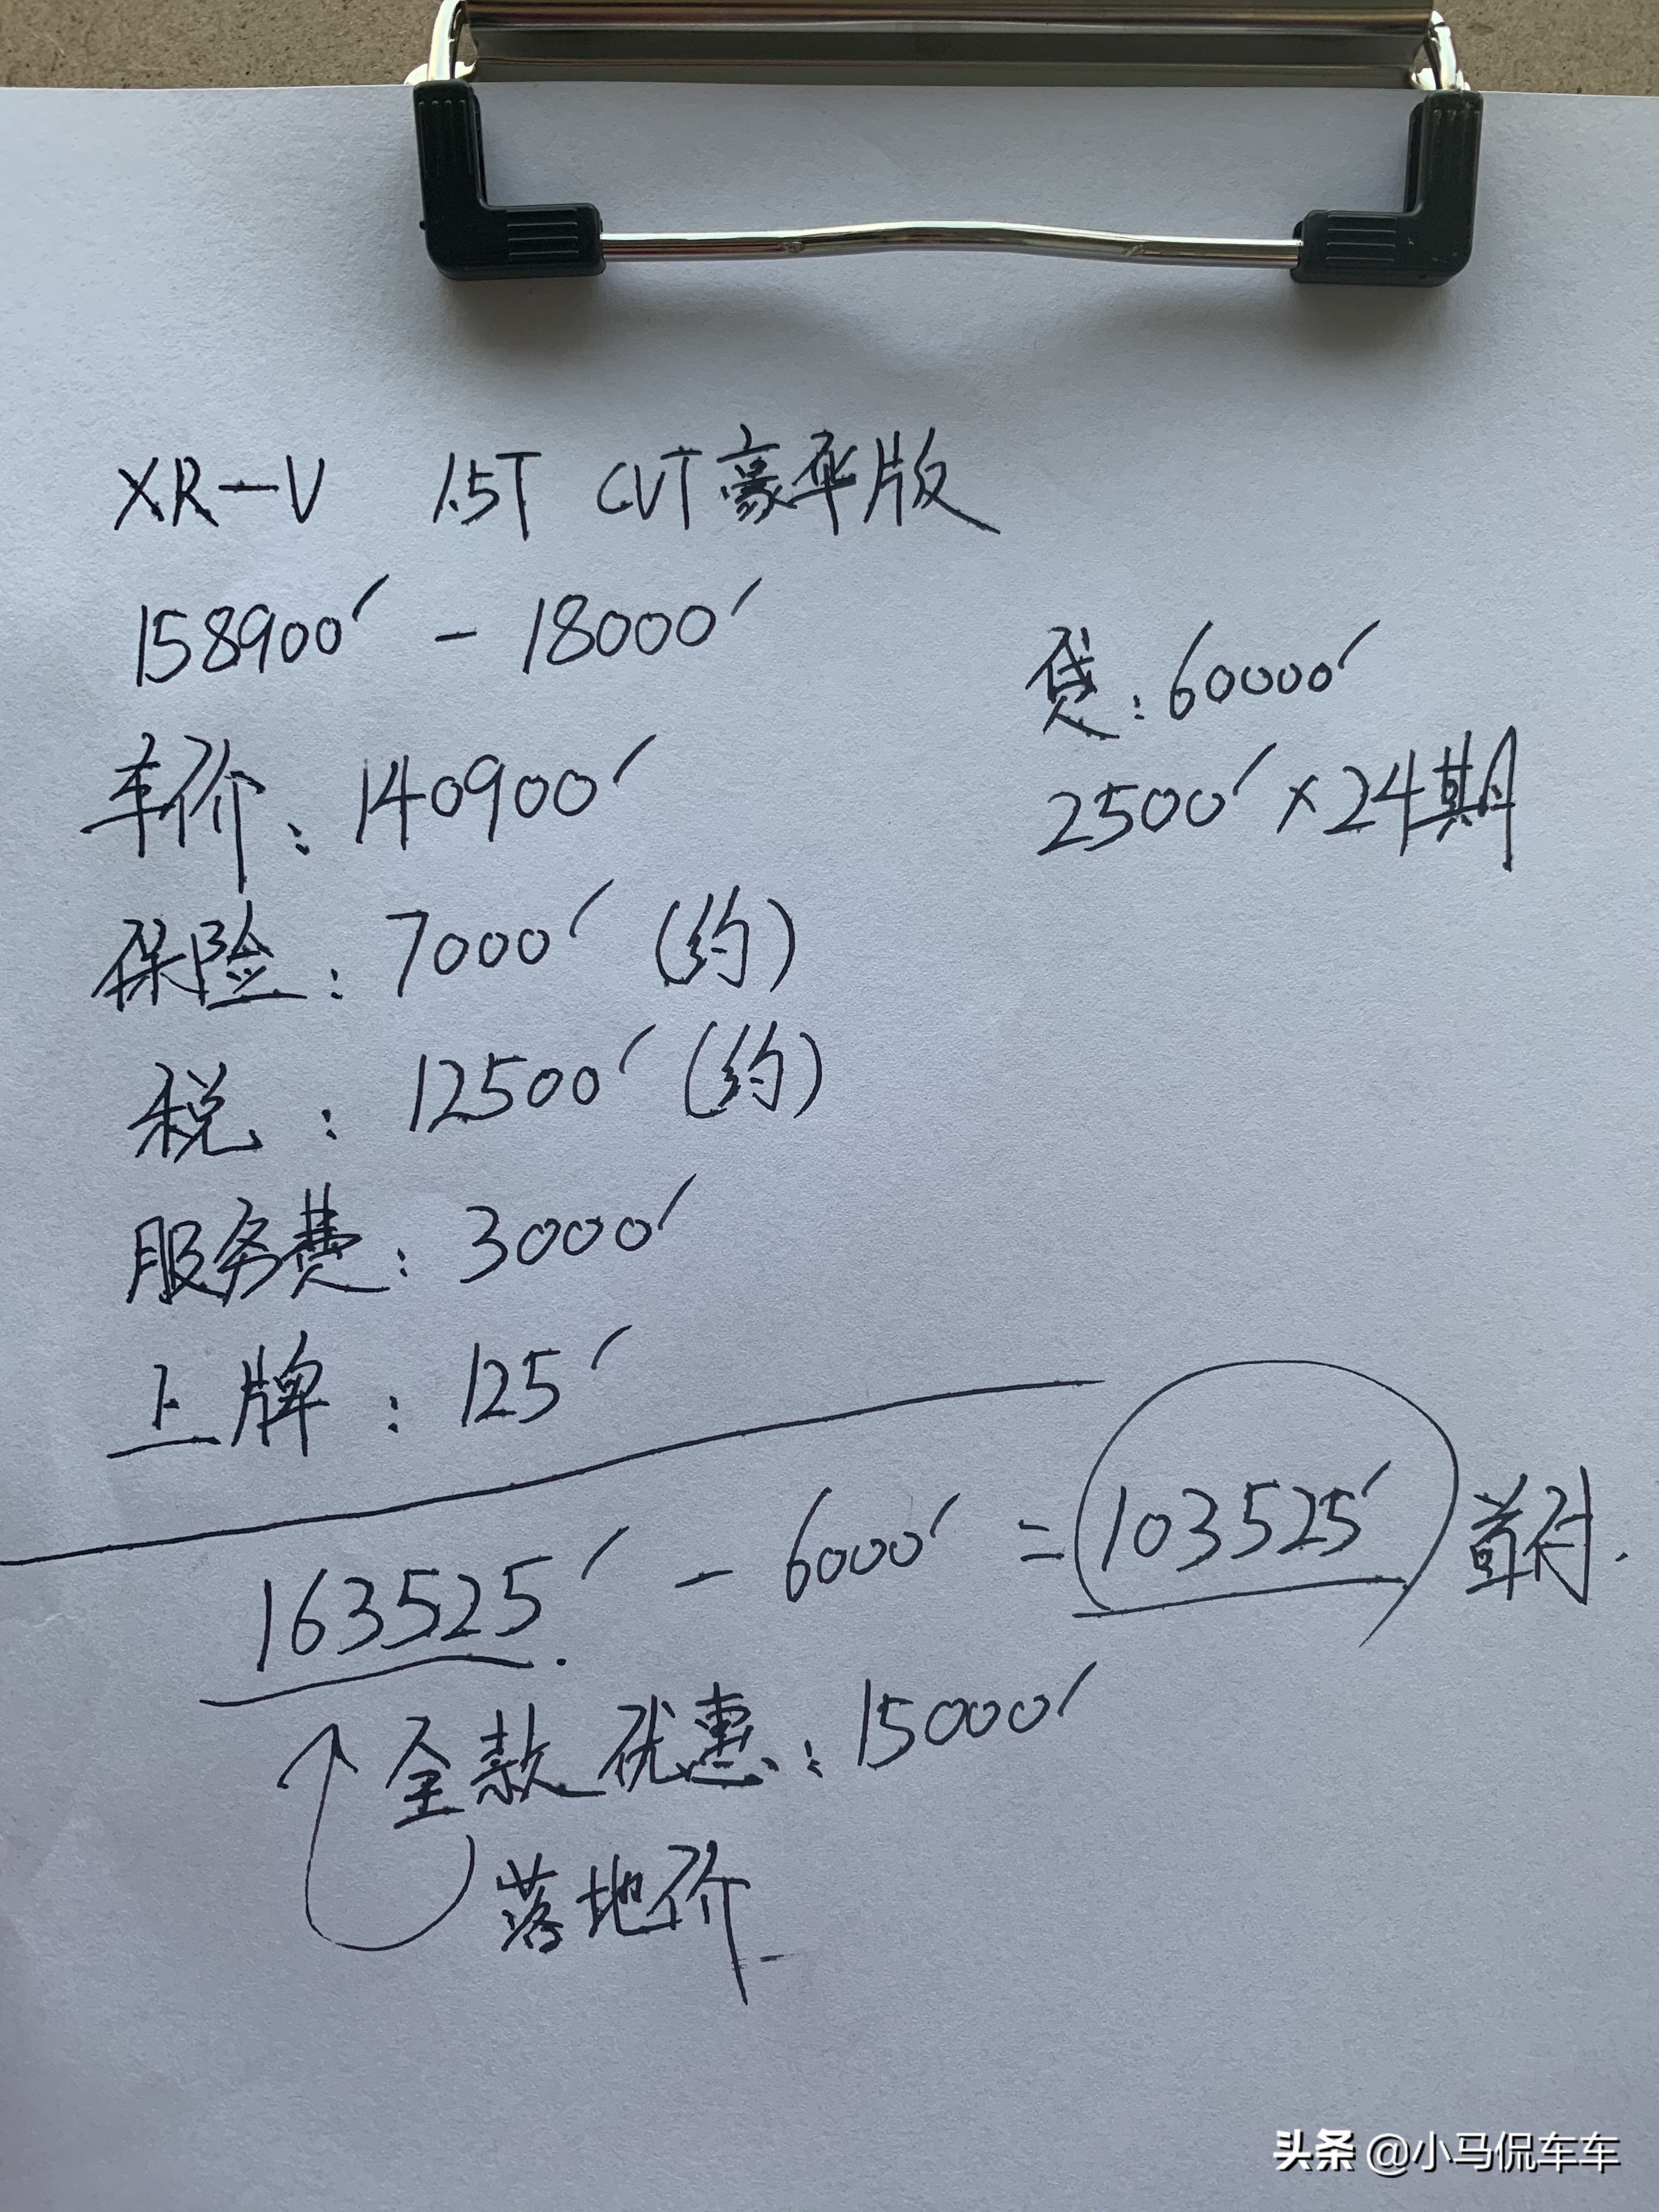 XR-V 1.5T CVT豪华版
158900 - 18000
贷:60000
车价:140900
2500×24期
保险:7000(约)
税:12500(约)
服务费:3000
上牌:125
163525 - 6000 = 103525 首付.
全款优惠:15000
落地价
头条 @小马侃车车